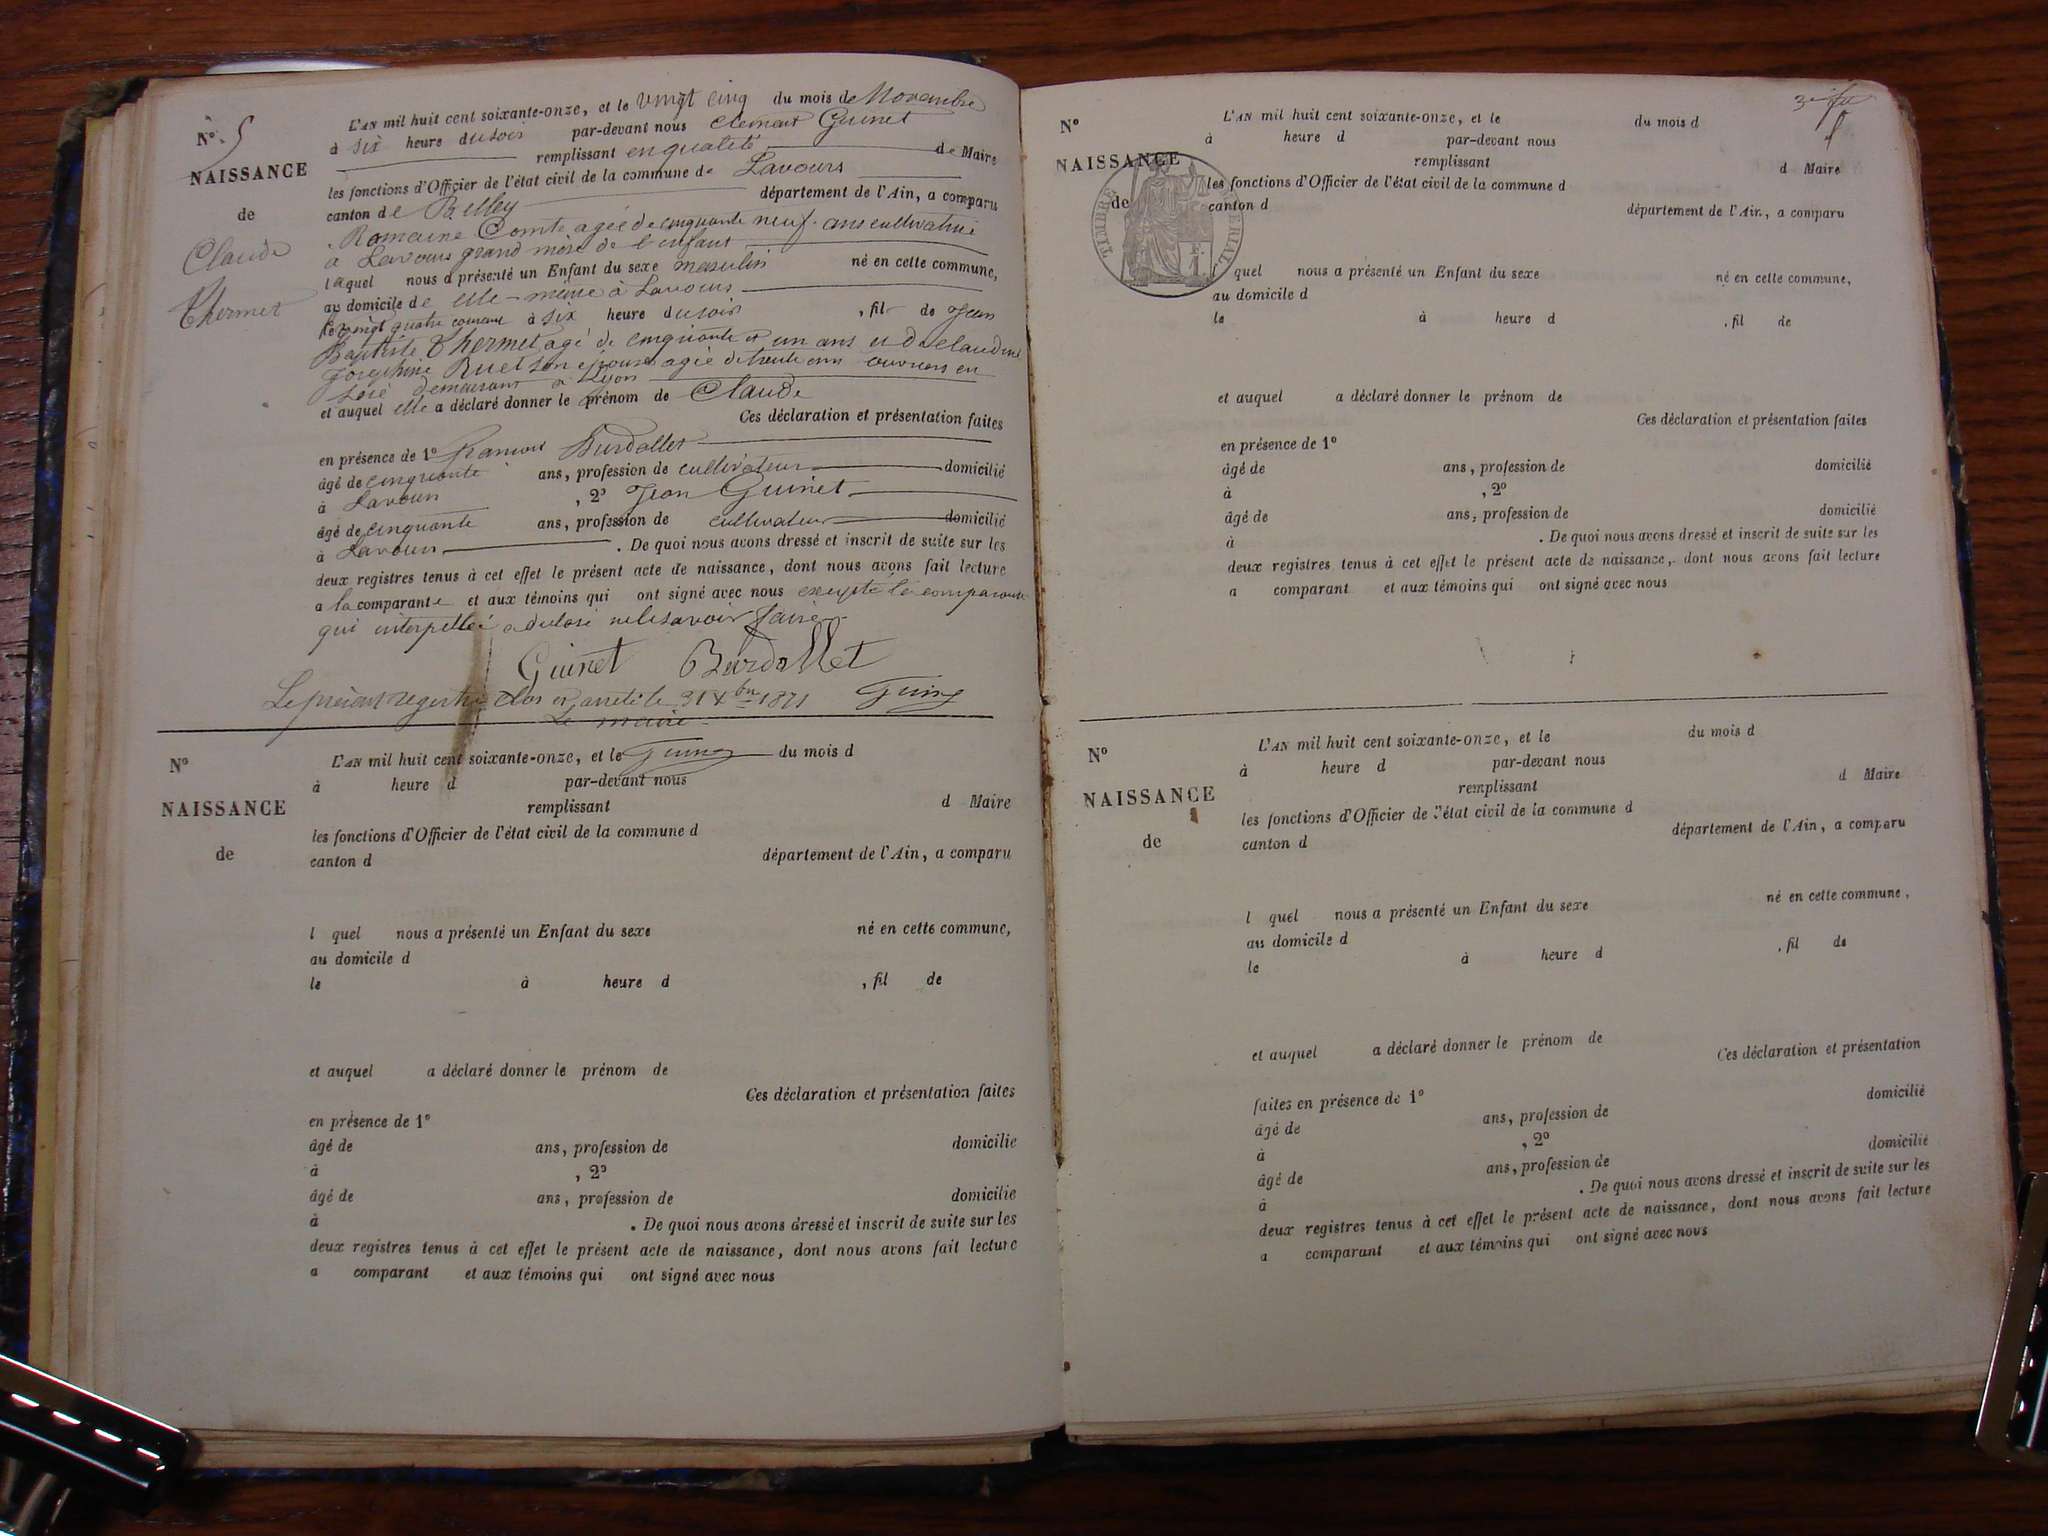 N° 5
NAISSANCE
de
Claude
Thermet
L'AN mil huit cent soixante-onze, et le vingt cinq du mois de Novembre
à six heure du soir par-devant nous Clément Guinet
remplissant en qualité de Maire
les fonctions d'Officier de l'état civil de la commune de Lavours
canton de Belley département de l'Ain, a comparu
Romaine Comte agée de cinquante neuf ans cultivatrice
à Lavours grand mère de l'enfant
laquel nous a présenté un Enfant du sexe masculin né en cette commune,
au domicile de elle-même à Lavours
le vingt quatre courant à six heure du soir, fils de Jean
Baptiste Thermet agé de cinquante et un ans et de Claudine
Joséphine Ruet son épouse agée de trente ans ouvriers en
soie demeurant à Lyon
et auquel elle a déclaré donner le prénom de Claude
Ces déclaration et présentation faites
en présence de 1° François Burdallet
âgé de cinquante ans, profession de cultivateur domicilié
à Lavours, 2° Jean Guinet
âgé de cinquante ans, profession de cultivateur domicilié
à Lavours. De quoi nous avons dressé et inscrit de suite sur les
deux registres tenus à cet effet le présent acte de naissance, dont nous avons fait lecture
a la comparante et aux témoins qui ont signé avec nous excepté la comparante
qui interpellée a déclaré ne le savoir faire
Guinet Burdallet
Le présent registre clos et arrêté le 31 Xbre 1871 Guinet
Le maire
N°
NAISSANCE
de
L'AN mil huit cent soixante-onze, et le Guinet du mois d
à heure d par-devant nous
remplissant d Maire
les fonctions d'Officier de l'état civil de la commune d
canton d département de l'Ain, a comparu
l quel nous a présenté un Enfant du sexe né en cette commune,
au domicile d
le à heure d , fil de
et auquel a déclaré donner le prénom de
Ces déclaration et présentation faites
en présence de 1°
âgé de ans, profession de domicilié
à , 2°
âgé de ans, profession de domicilié
à . De quoi nous avons dressé et inscrit de suite sur les
deux registres tenus à cet effet le présent acte de naissance, dont nous avons fait lecture
a comparant et aux témoins qui ont signé avec nous
N°
NAISSANCE
de
TIMBRE IMPÉRIAL
L'AN mil huit cent soixante-onze, et le du mois d
à heure d par-devant nous
remplissant d Maire
les fonctions d'Officier de l'état civil de la commune d
canton d département de l'Ain, a comparu
l quel nous a présenté un Enfant du sexe né en cette commune,
au domicile d
le à heure d , fil de
et auquel a déclaré donner le prénom de
Ces déclaration et présentation faites
en présence de 1°
âgé de ans, profession de domicilié
à , 2°
âgé de ans, profession de domicilié
à . De quoi nous avons dressé et inscrit de suite sur les
deux registres tenus à cet effet le présent acte de naissance, dont nous avons fait lecture
a comparant et aux témoins qui ont signé avec nous
N°
NAISSANCE
de
L'AN mil huit cent soixante-onze, et le du mois d
à heure d par-devant nous
remplissant d Maire
les fonctions d'Officier de l'état civil de la commune d
canton d département de l'Ain, a comparu
l quel nous a présenté un Enfant du sexe né en cette commune,
au domicile d
le à heure d , fil de
et auquel a déclaré donner le prénom de
Ces déclaration et présentation
faites en présence de 1° domicilié
âgé de ans, profession de
à , 2° domicilié
âgé de ans, profession de
à . De quoi nous avons dressé et inscrit de suite sur les
deux registres tenus à cet effet le présent acte de naissance, dont nous avons fait lecture
a comparant et aux témoins qui ont signé avec nous